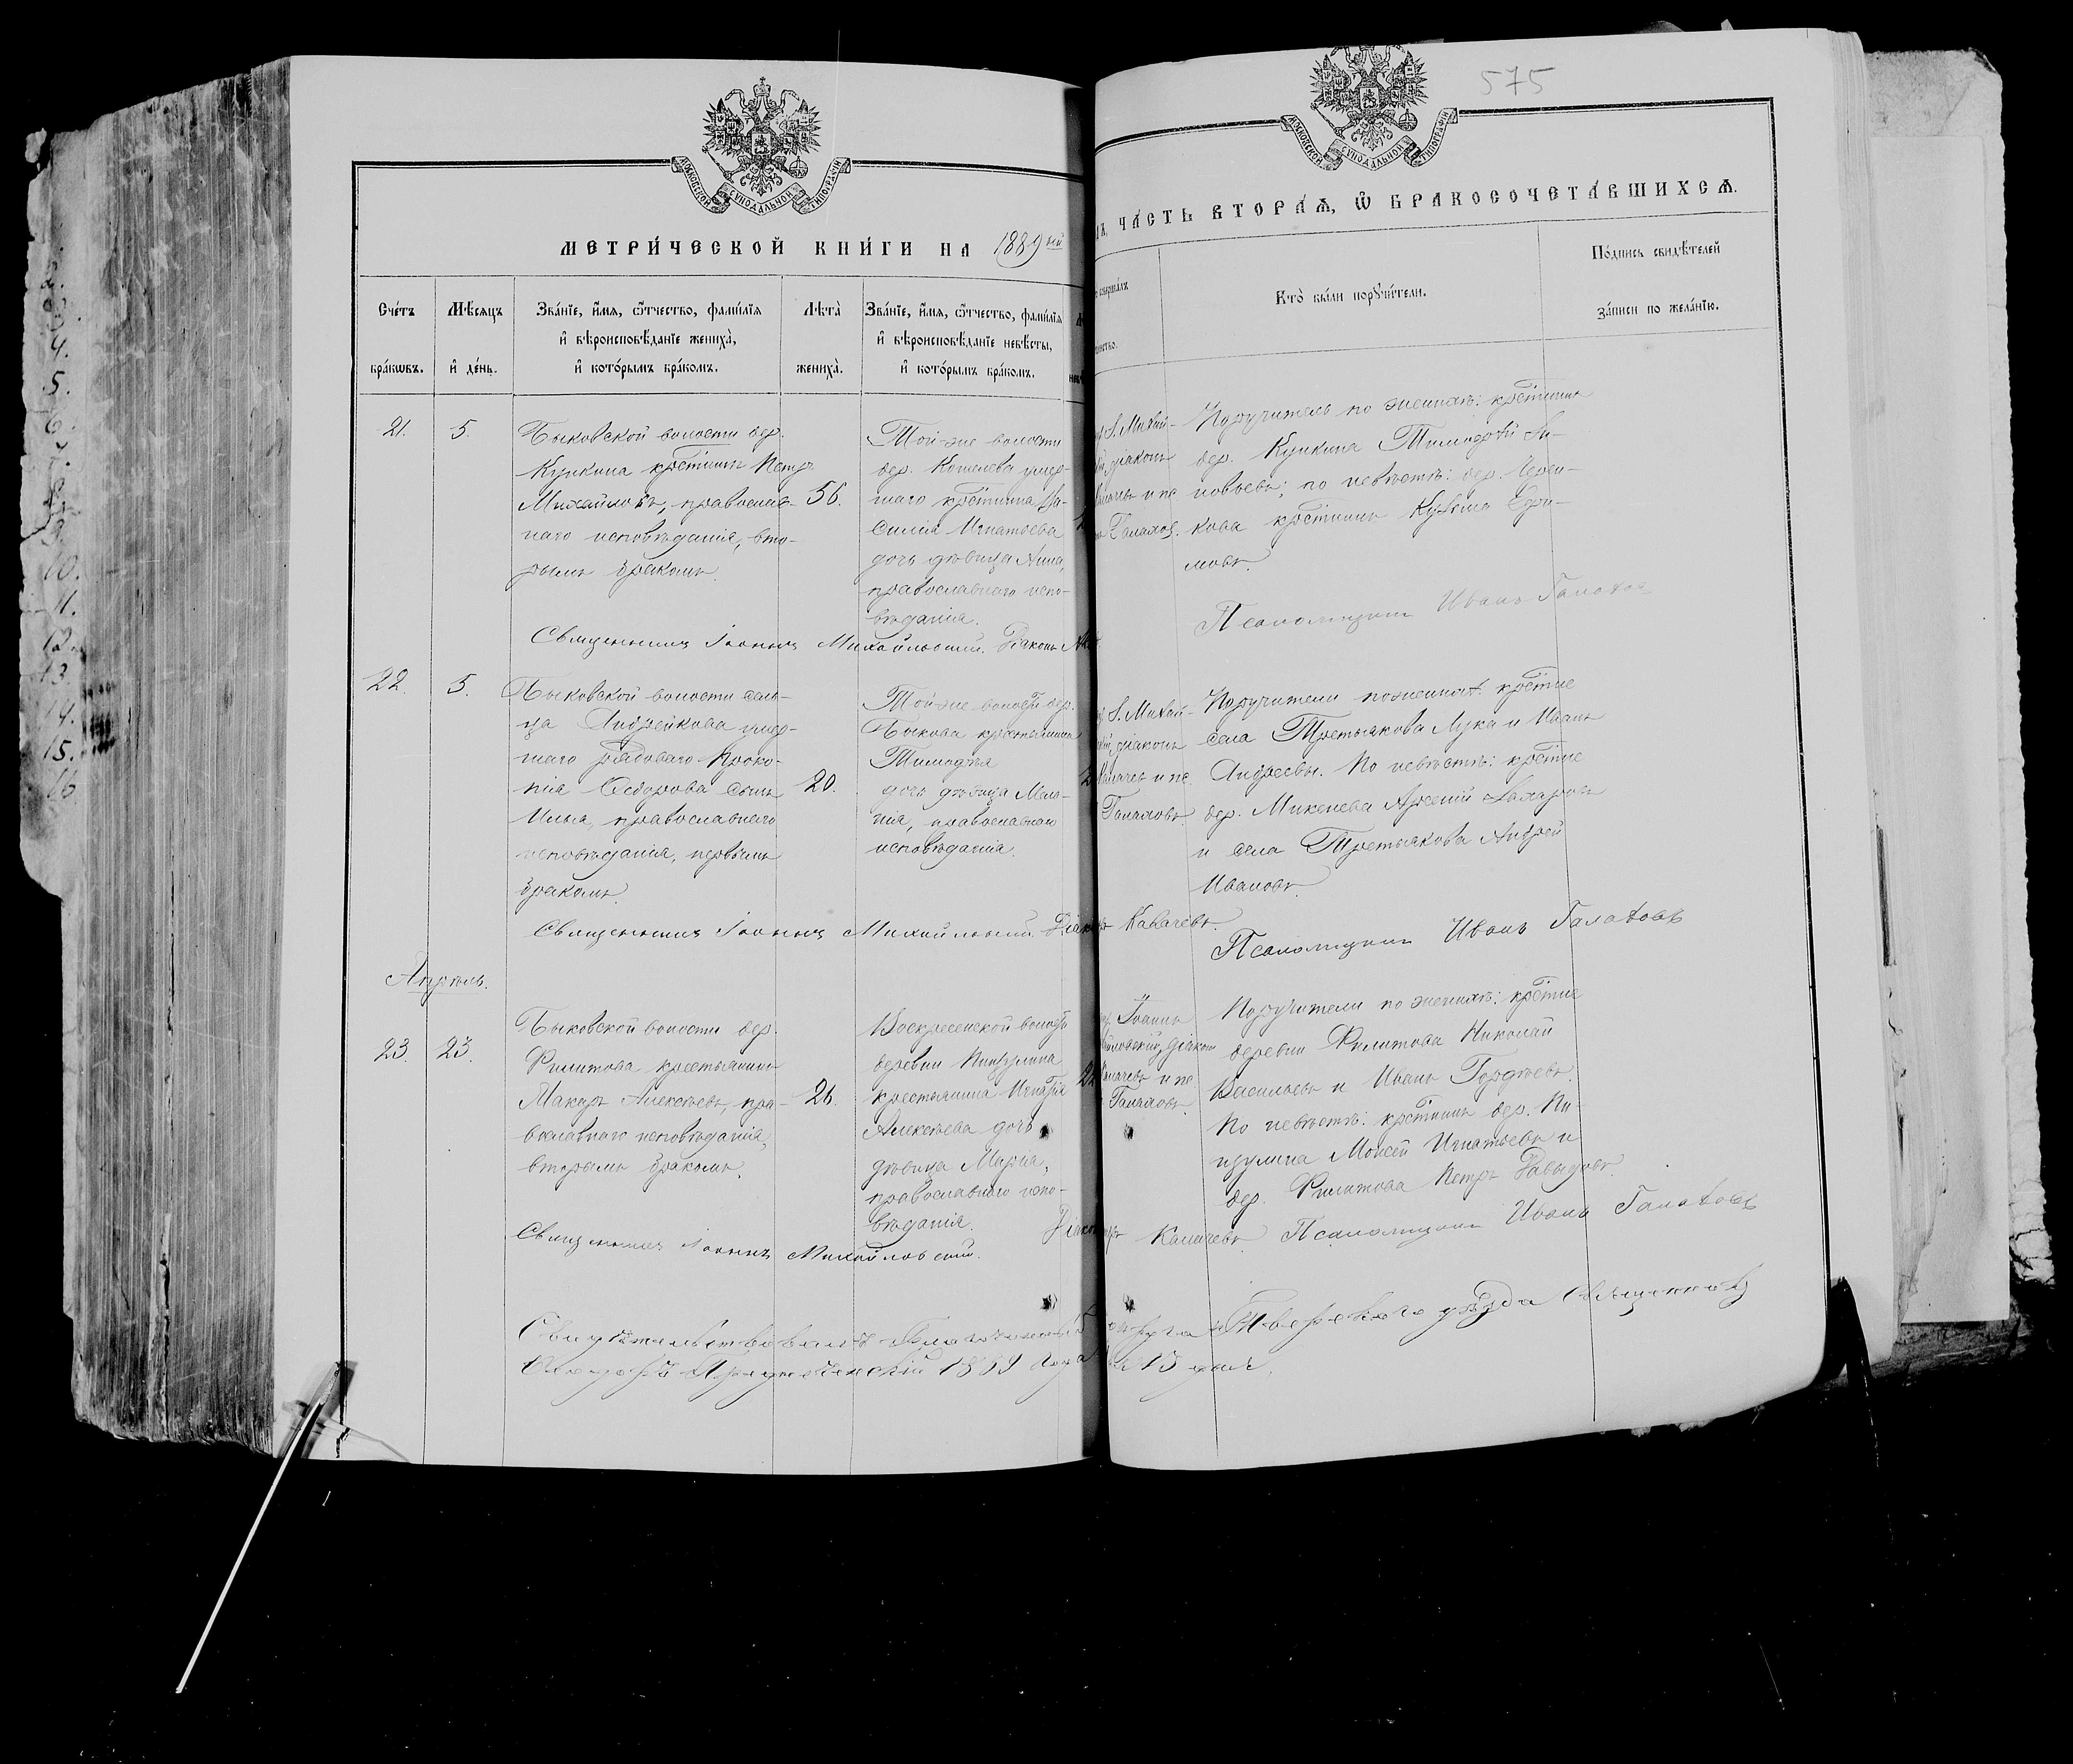 575
МОСКОВСКОЙ СѴНОДАЛЬНОЙ ТИПОГРАФІИ
МОСКОВСКОЙ СѴНОДАЛЬНОЙ ТИПОГРАФІИ
МЕТРИ́ЧЕСКОЙ КНИ́ГИ НА 1889 ый
ЧА́СТЬ ВТОРА́Ѧ, Ѽ БРАКОСОЧЕТА́ВШИХСѦ.
Сче́тъ бра́кѡвъ.
Мѣ́сѧцъ и҆ де́нь.
Зва́нїе, и҆́мѧ, ѻ҆́тчество, фами́лїѧ
и҆ вѣроисповѣ́данїе жениха̀,
и҆ кото́рымъ бра́комъ.
Лѣта̀ жениха̀.
Зва́нїе, и҆́мѧ, ѻ҆́тчество, фами́лїѧ
и҆ вѣроисповѣ́данїе невѣ́сты,
и҆ кото́рымъ бра́комъ.
Кто̀ бы́ли порꙋчи́тели.
По́дпись свидѣ́телей
за́писи по жела́нїю.
21.
5.
Быковской волости дер.
Кункина крестинъ Петръ
Михайловъ, православ-
наго исповѣданія, вто-
рымъ бракомъ.
56.
Той-же волости
дер. Кошелева умер-
шаго крестина Ва-
силія Игнатьева
дочь дѣвица Анна,
православнаго испо-
вѣданія.
І. Михай-
діаконъ
и пс.
Галахов.
Поручители по женихѣ: крестинъ
дер. Кункина Тимофей
по невѣстѣ: дер.
кова крестинъ Кузьма Ефи-
мовъ.
Священникъ Іоаннъ Михайловский. Діаконъ
Псаломщикъ Иванъ Галахов
22.
5.
Быковской волости сель-
ца Андрейкова умер-
шаго рядоваго Проко-
пія Ѳедорова сынъ
Илья, православнаго
исповѣданія, первымъ
бракомъ.
20.
Той-же волости дер.
Быкова крестьянина
Тимофѣя
дочь дѣвица Мела-
нія, православнаго
исповѣданія.
І. Михай-
діаконъ
и пс.
Галаховъ.
Поручители по женихѣ: крестіне
села Третьякова Лука и Иванъ
Андреевы. По невѣстѣ: крестіне
дер. Микенева Арсеній Захаровъ
и села Третьякова Андрей
Ивановъ.
Священникъ Іоаннъ Михайловский. Діаконъ Калачевъ.
Псаломщикъ Иванъ Галаховъ
Апрѣль.
23.
23.
Быковской волости дер.
Филитова крестьянинъ
Макаръ Алексѣевъ, пра-
вославнаго исповѣданія,
вторымъ бракомъ.
26.
Воскресенской волости
деревни Пицулина
крестьянина Игнатія
Алексѣева дочь
дѣвица Марія,
православнаго испо-
вѣданія.
Іоаннъ
діаконъ
и пс.
Галаховъ.
Поручители по женихѣ: крестіне
деревни Филитова Николай
Васильевъ и Иванъ Гордѣевъ.
По невѣстѣ: крестинъ дер. Пи-
цулина Моисей Игнатьевъ и
дер. Филитова Петръ Давыдовъ.
Священникъ Іоаннъ Михайловский.
Діаконъ Калачевъ. Псаломщикъ Иванъ Галаховъ
Свидѣтельствовалъ Благочинный округа Тверскаго уѣзда Священникъ
1889 года 13 дня.
2.
3.
4.
5.
6.
7.
8.
9.
10.
11.
12.
13.
14.
15.
16